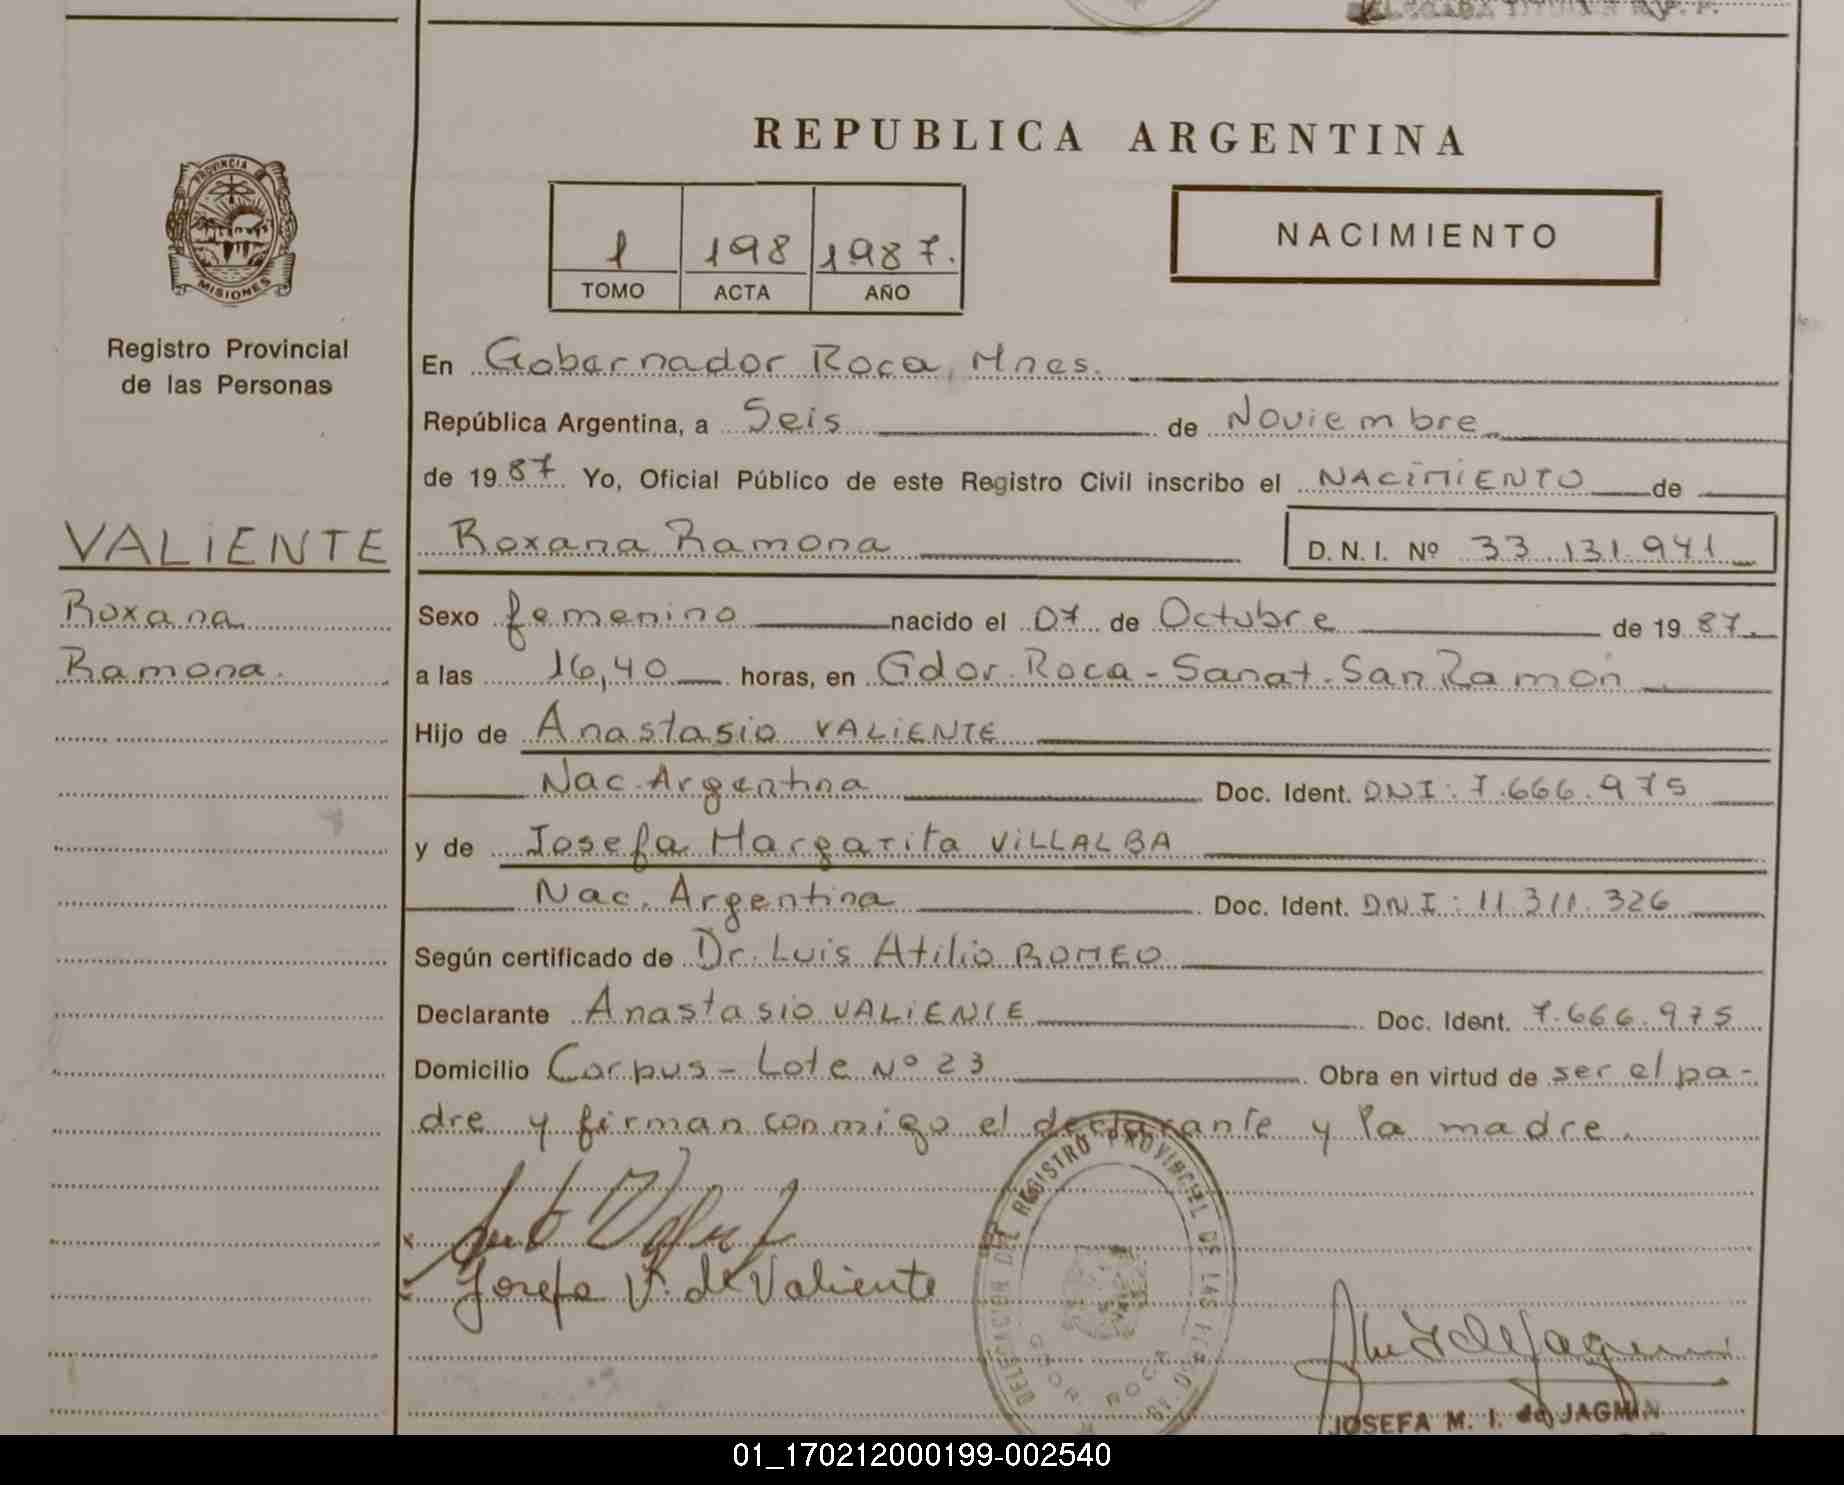 REPUBLICA ARGENTINA
PROVINCIA DE
MISIONES
Registro Provincial
de las Personas
1 198 1987.
TOMO ACTA AÑO
NACIMIENTO
En Gobernador Roca, Mnes.
República Argentina, a Seis de Noviembre
de 1987 Yo, Oficial Público de este Registro Civil inscribo el NACIMIENTO de
VALIENTE Roxana Ramona D.N.I. Nº 33.131.941
Roxana
Ramona.
Sexo femenino nacido el 07 de Octubre de 1987.
a las 16,40 horas, en Gdor. Roca - Sanat. San Ramón
Hijo de Anastasio VALIENTE
Nac. Argentina Doc. Ident. DNI: 7.666.975
y de Josefa Margarita VILLALBA
Nac. Argentina Doc. Ident. DNI: 11.311.326
Según certificado de Dr. Luis Atilio ROMEO
Declarante Anastasio VALIENTE Doc. Ident. 7.666.975
Domicilio Corpus - Lote Nº 23 Obra en virtud de ser el pa-
dre y firman conmigo el declarante y la madre.
Josefa V. de Valiente
DELEGACION DEL REGISTRO PROVINCIAL DE LAS PERSONAS
GDOR. ROCA
JOSEFA M. I. de JAGMIN
01_170212000199-002540